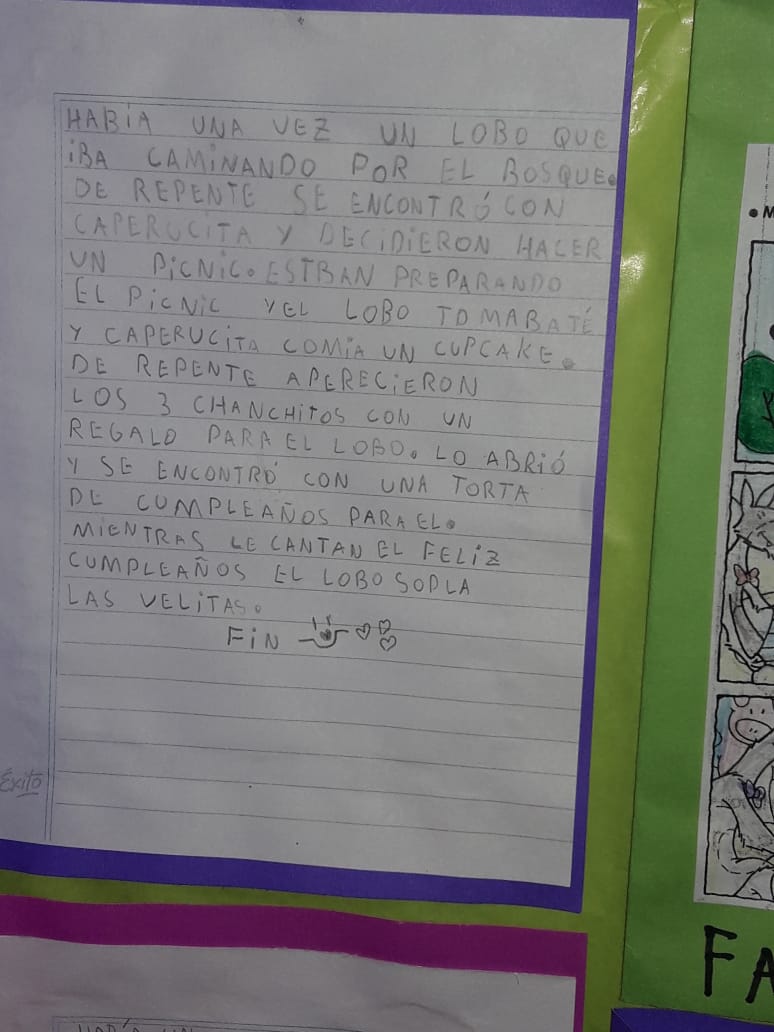 HABÍA UNA VEZ UN LOBO QUE
iBA CAMiNANDO POR EL BOSQUE.
DE REPENTE SE ENCONTRÓ CON
CAPERUCiTA Y DECiDiERON HACER
UN PiCNiC. ESTBAN PREPARANDO
EL PiCNiC YEL LOBO TOMABA TÉ
Y CAPERUCiTA COMÍA UN CUPCAKE.
DE REPENTE APERECiERON
LOS 3 CHANCHiTOS CON UN
REGALO PARA EL LOBO. LO ABRiÓ
Y SE ENCONTRÓ CON UNA TORTA
DE CUMPLEAÑOS PARA EL.
MiENTRAS LE CANTAN EL FELiZ
CUMPLEAÑOS EL LOBO SOPLA
LAS VELiTAS.
FiN
Éxito
FA